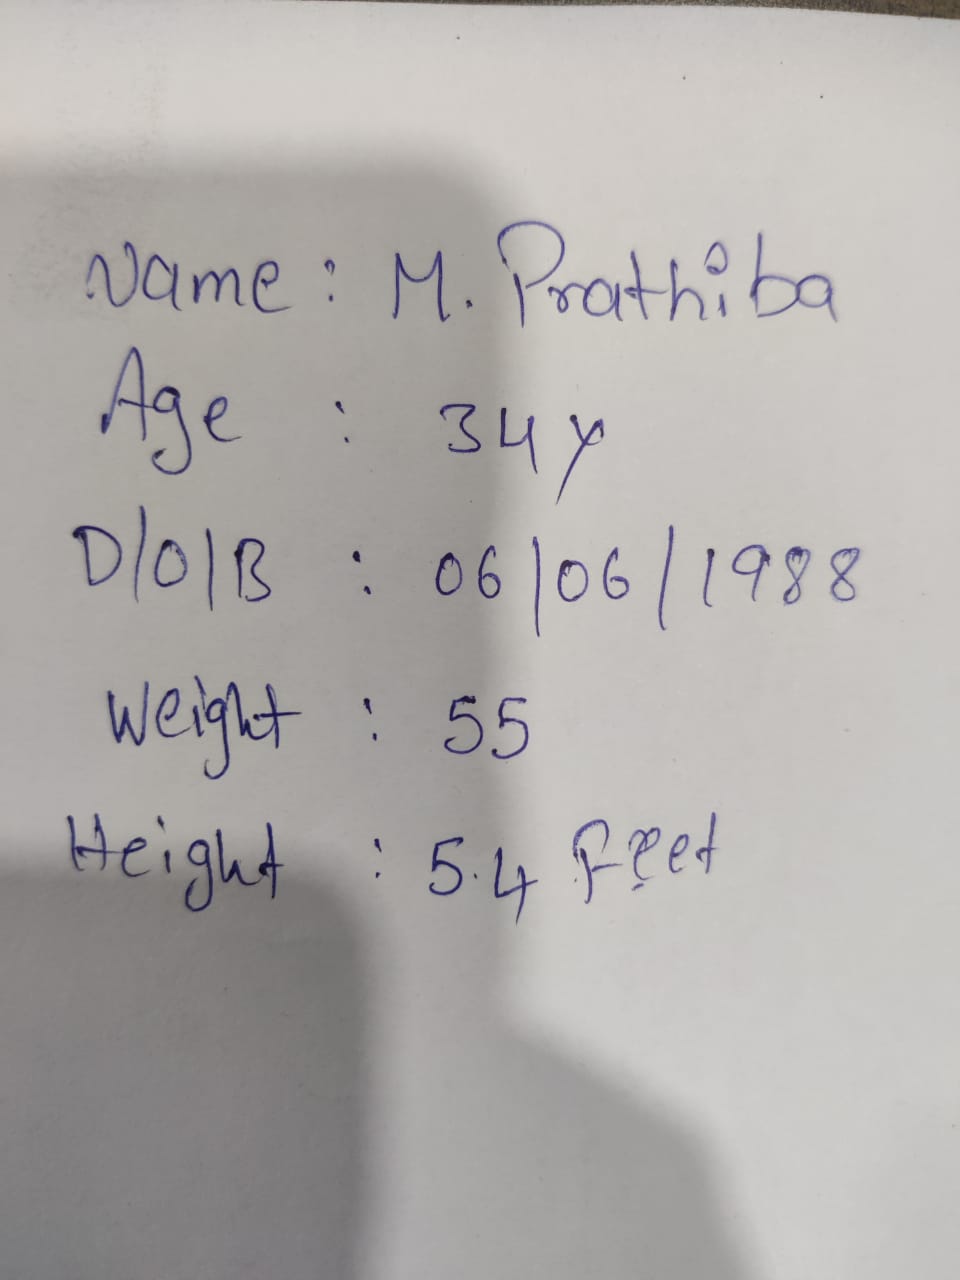 Name : M. Prathiba
Age : 34y
D/O/B : 06/06/1988
Weight : 55
Height : 5.4 feet